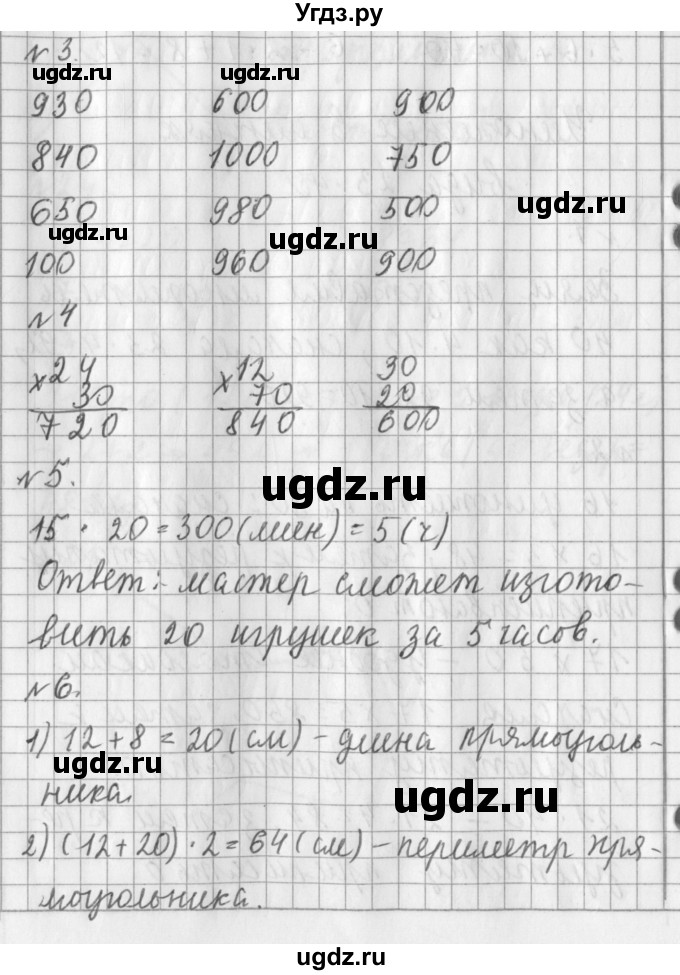 Угдз.ру
№ 3.
ugdz.ru ugdz.ru
930 600 900
840 1000 750
650 980 500 ugdz.ru
ugdz.ru ugdz.ru
100 960 900
№ 4
×24 ×12 30
30 70 20
720 840 600
ugdz.ru
№ 5.
15 · 20 = 300 (мин) = 5 (ч)
Ответ: мастер сможет изгото-
вить 20 игрушек за 5 часов.
№ 6.
1) 12 + 8 = 20 (см) – длина прямоуголь-
ugdz.ru
ника. ugdz.ru
2) (12 + 20) · 2 = 64 (см) – периметр пря-
моугольника.
ugdz.ru